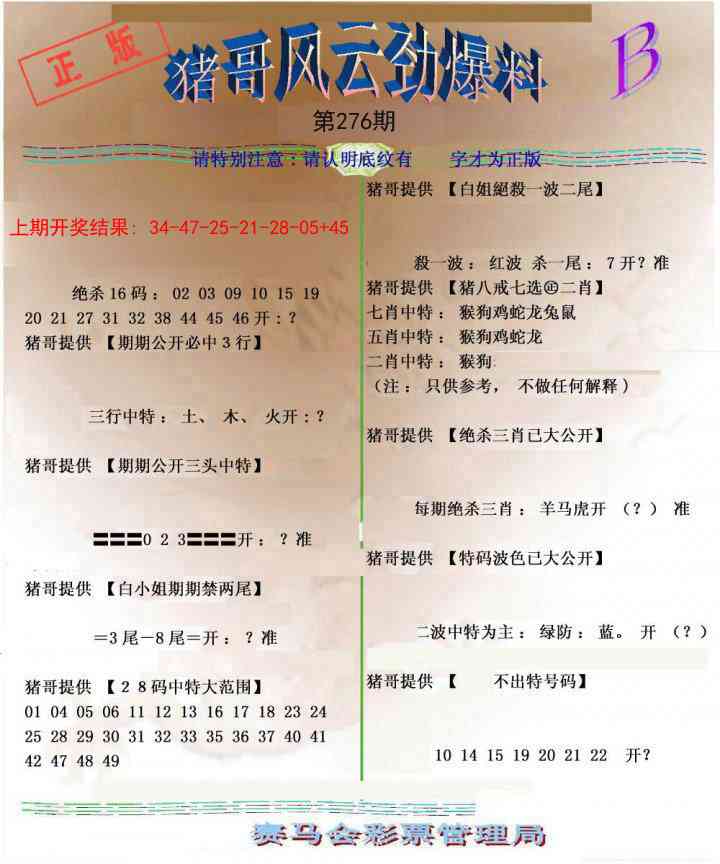 正版
猪哥风云劲爆料
B
第276期
请特别注意：请认明底纹有 字才为正版
上期开奖结果: 34-47-25-21-28-05+45
绝杀16码：02 03 09 10 15 19
20 21 27 31 32 38 44 45 46开：？
猪哥提供 【期期公开必中3行】
三行中特： 土、 木、 火开：？
猪哥提供 【期期公开三头中特】
〓〓〓0 2 3〓〓〓开： ？准
猪哥提供 【白小姐期期禁两尾】
＝3尾－8尾＝开： ？准
猪哥提供 【２８码中特大范围】
01 04 05 06 11 12 13 16 17 18 23 24
25 28 29 30 31 32 33 35 36 37 40 41
42 47 48 49
猪哥提供 【白姐絕殺一波二尾】
殺一波： 红波 杀一尾： 7开？准
猪哥提供 【猪八戒七选㊣二肖】
七肖中特： 猴狗鸡蛇龙兔鼠
五肖中特： 猴狗鸡蛇龙
二肖中特： 猴狗
（注： 只供参考， 不做任何解释）
猪哥提供 【绝杀三肖已大公开】
每期绝杀三肖： 羊马虎开 （？） 准
猪哥提供 【特码波色已大公开】
二波中特为主：绿防：蓝。 开 （？）
猪哥提供 【 不出特号码】
10 14 15 19 20 21 22 开？
赛马会彩票管理局